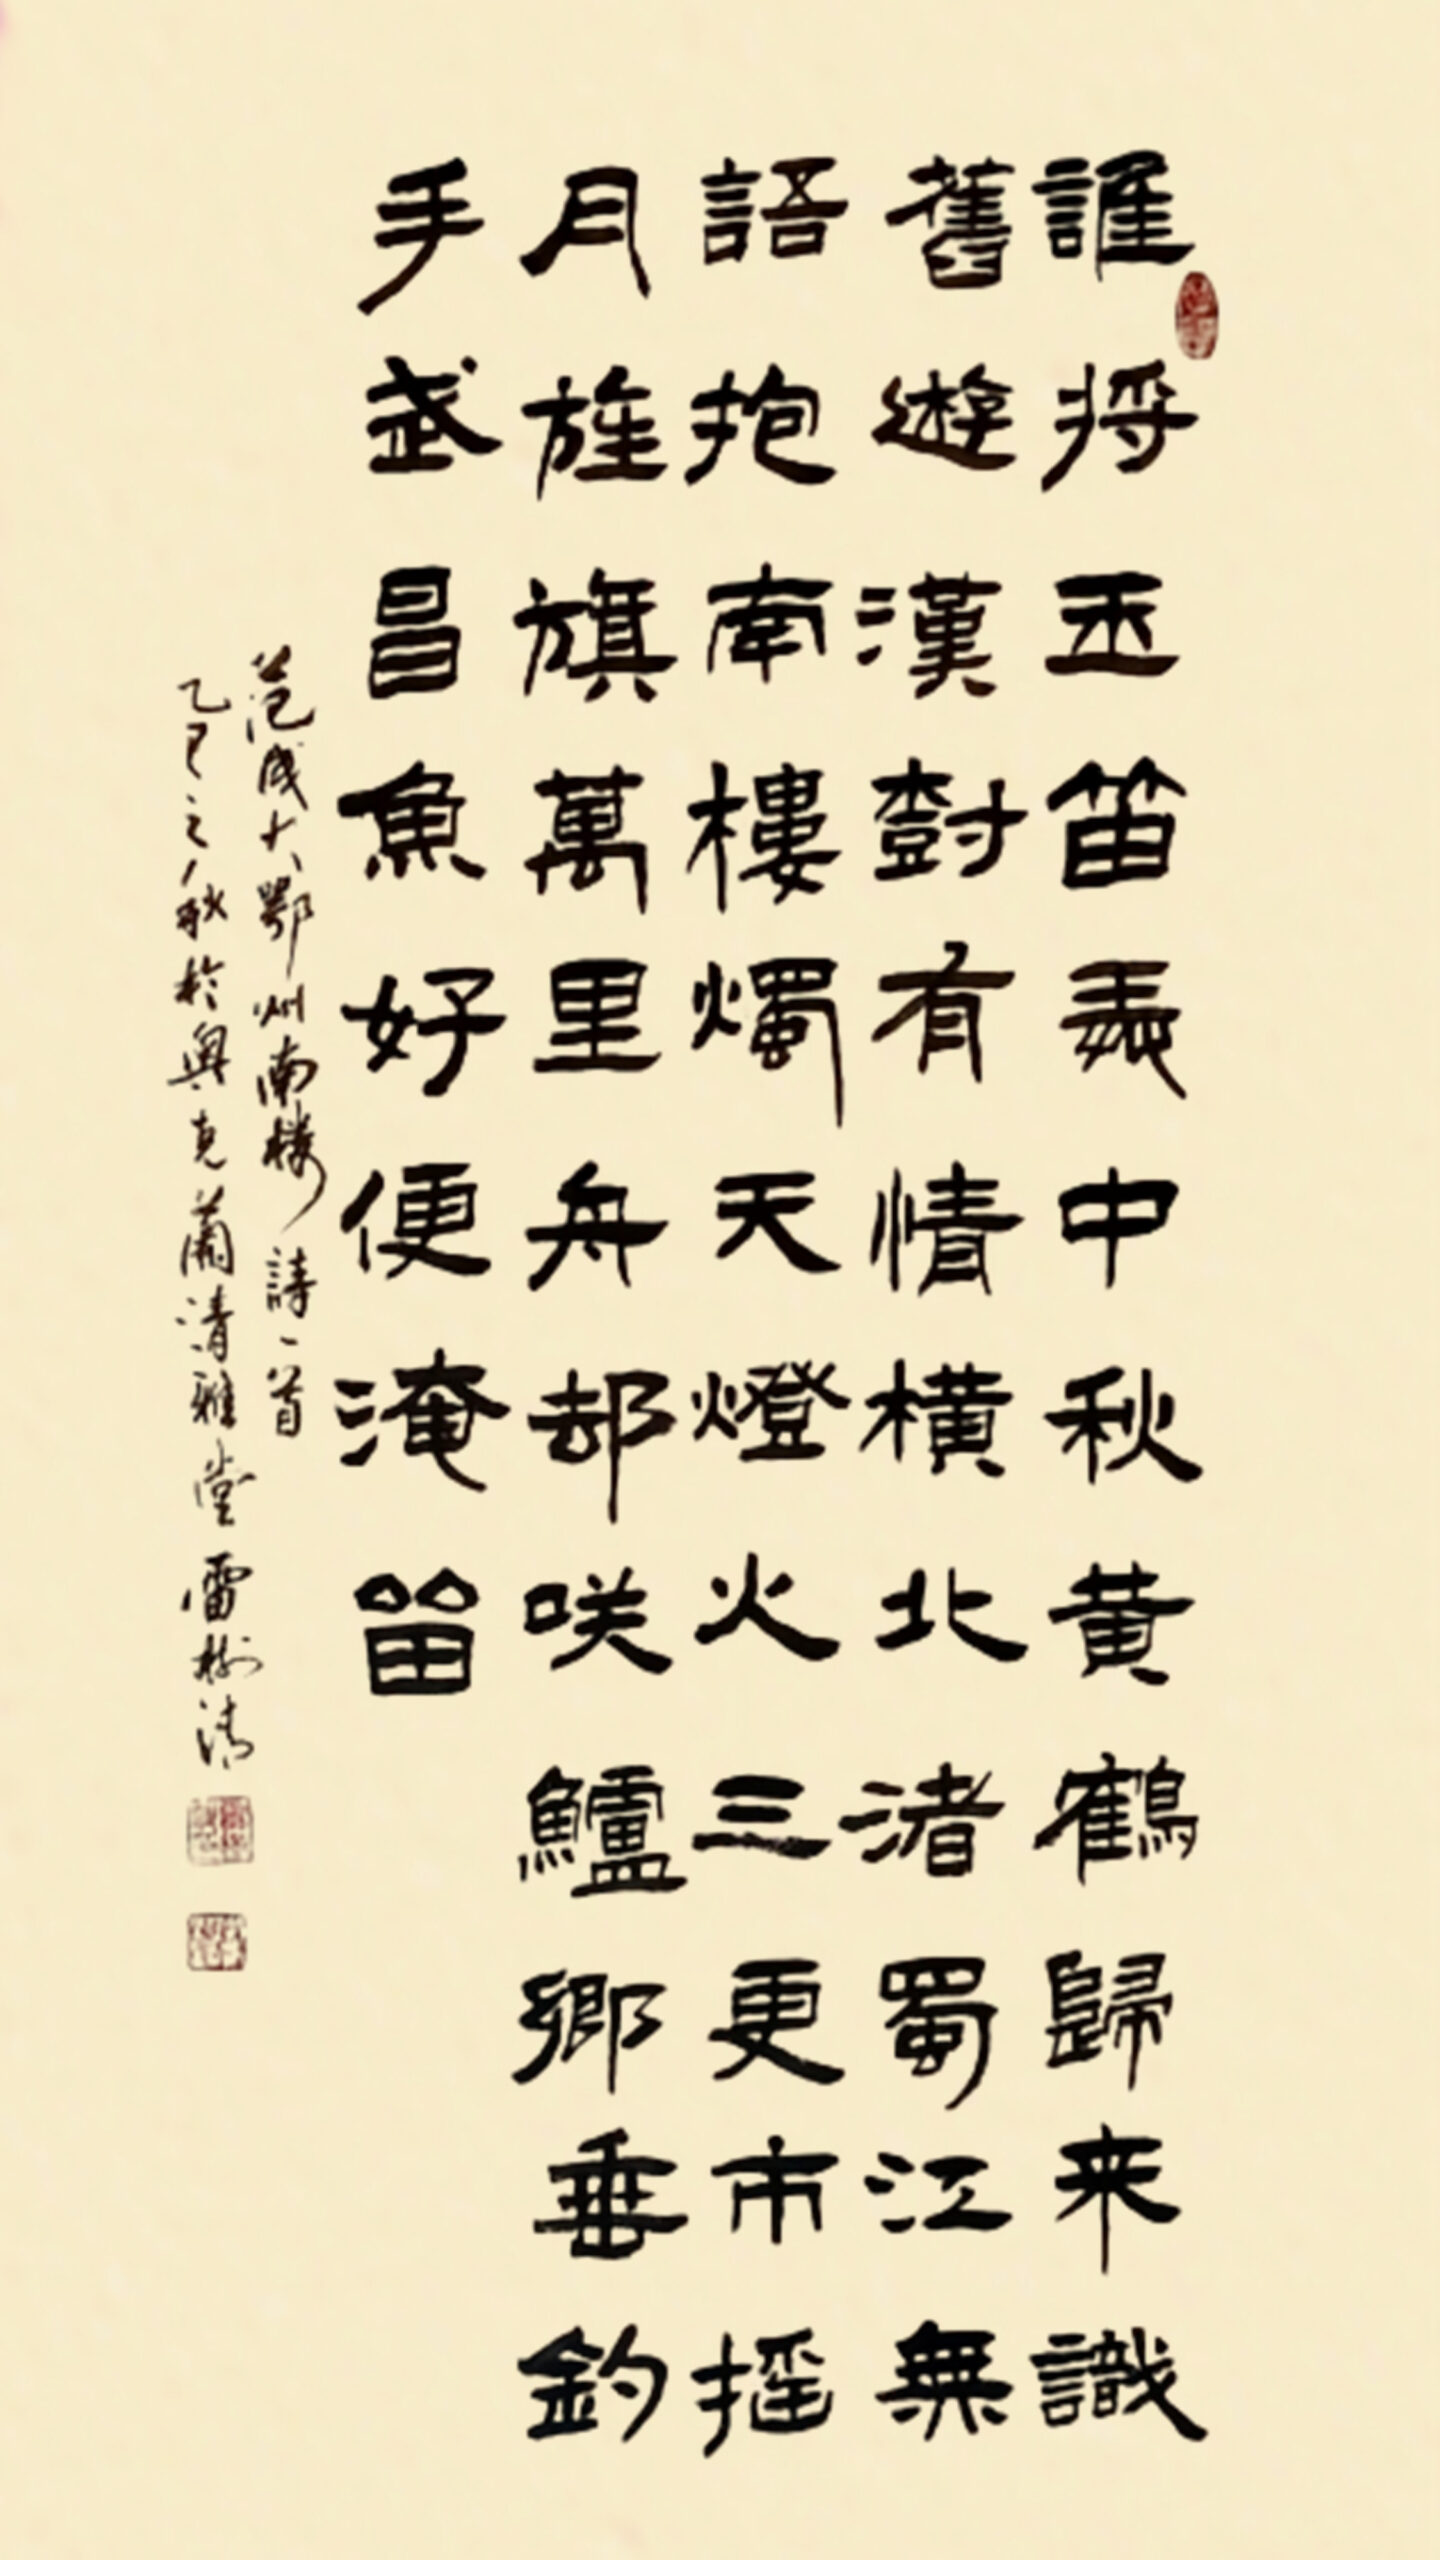 誰將玉笛弄中秋黄鶴歸来識
舊遊漢對有情橫北渚蜀江無
語抱南樓燭天燈火三更市摇
月旌旗萬里舟却咲鱸鄉垂釣
手武昌魚好便淹留
范成大鄂州南楼詩一首
乙巳之秋於奥克蘭清雅堂雷樹清